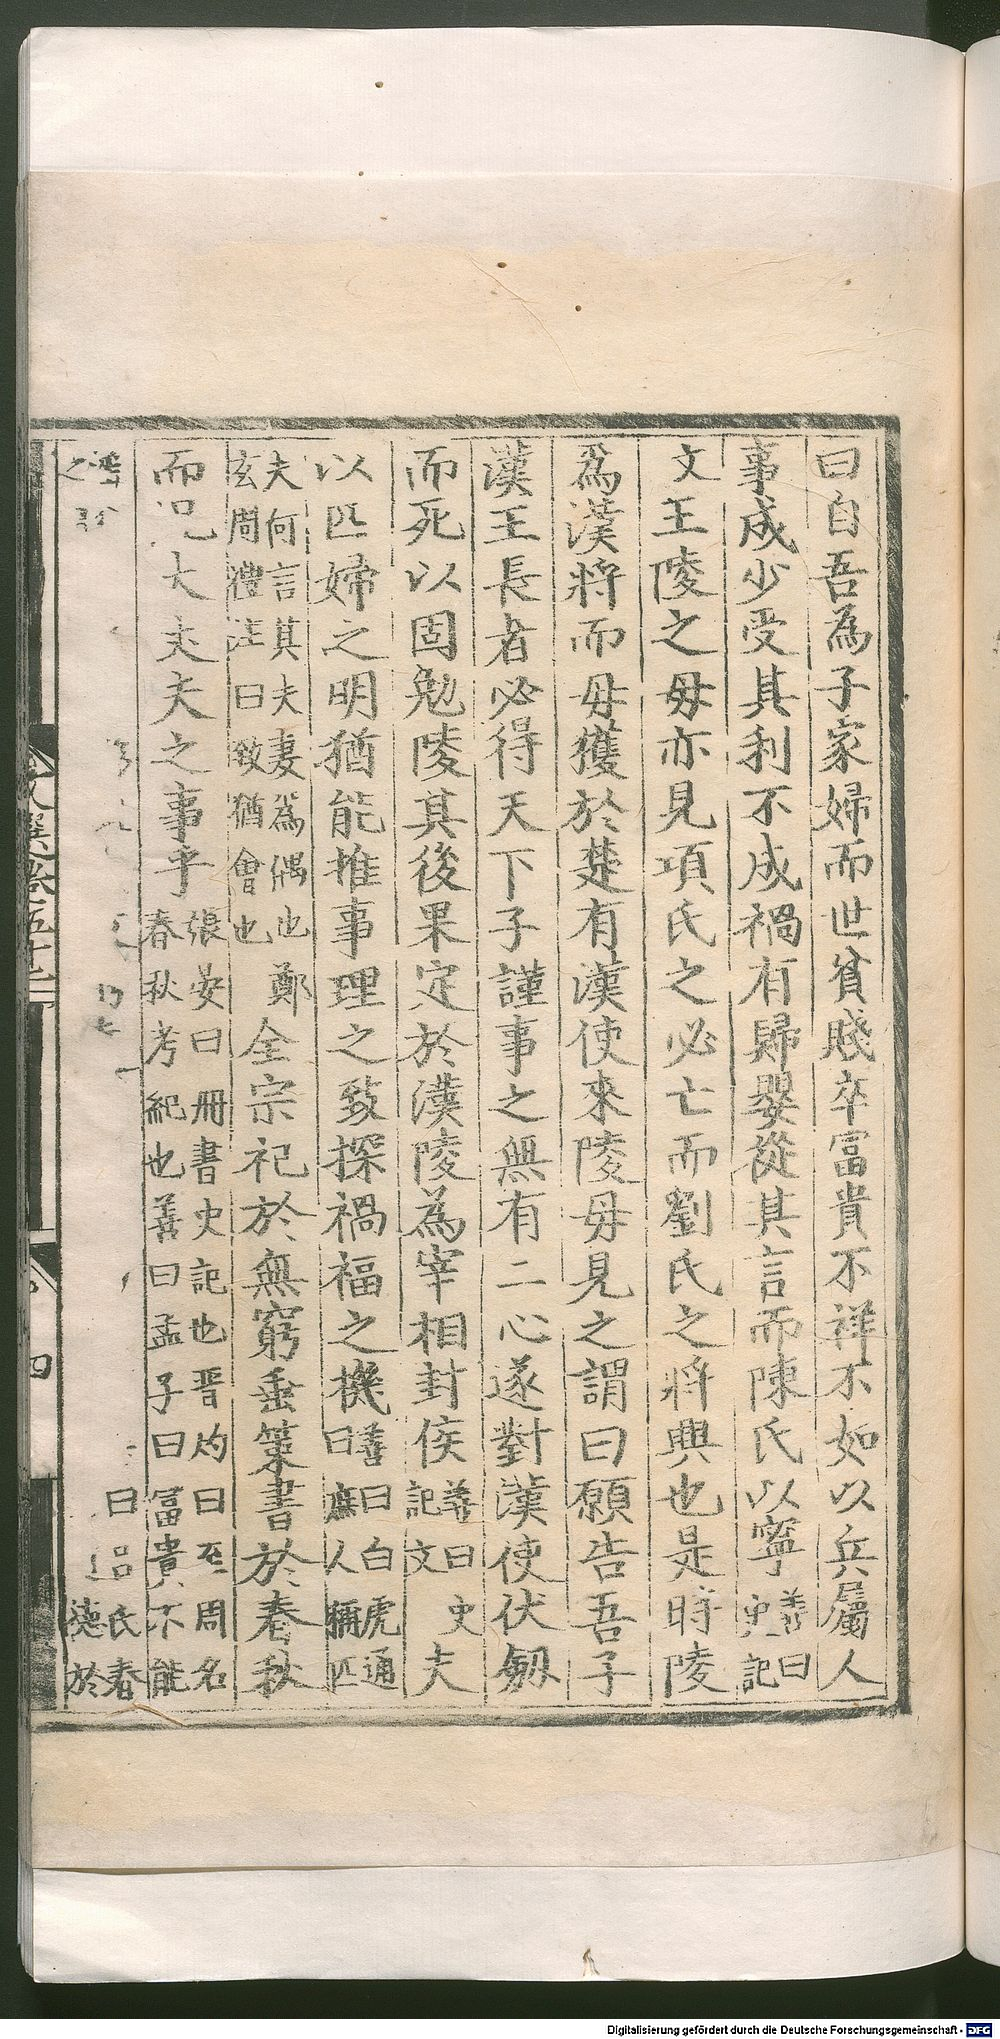 曰自吾為子家婦而世貧賤卒富貴不祥不如以兵屬人
事成少受其利不成禍有歸嬰從其言而陳氏以寧善曰史記
文王陵之母亦見項氏之必亡而劉氏之將興也是時陵
爲漢將而母獲於楚有漢使來陵母見之謂曰願告吾子
漢王長者必得天下子謹事之無有二心遂對漢使伏劒
而死以固勉陵其後果定於漢陵為宰相封侯善曰史記文夫
以匹婦之明猶能推事理之致探禍福之機善曰白虎通曰庶人稱匹
夫何言其夫妻爲偶也鄭玄周禮注曰致猶會也全宗祀於無窮垂策書於春秋
而況大丈夫之事乎張晏曰冊書史記也晋灼曰至周名春秋考紀也善曰孟子曰富貴不能
曰呂氏春德於
文選卷五十二
四
Digitalisierung gefördert durch die Deutsche Forschungsgemeinschaft - DFG